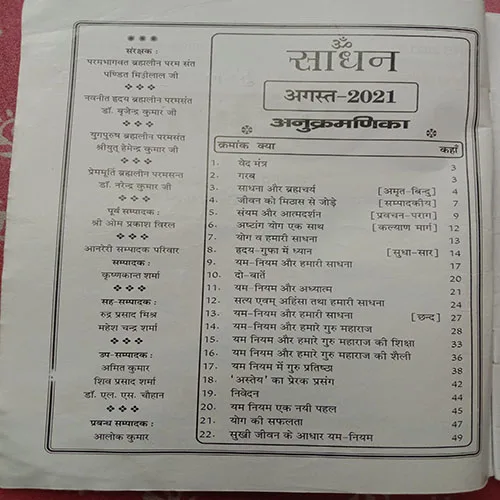 संरक्षक :
परमभागवत ब्रह्मलीन परम संत
पण्डित मिहीलाल जी
नवनीत हृदय ब्रह्मलीन परमसंत
डॉ. बृजेन्द्र कुमार जी
युगपुरुष ब्रह्मलीन परमसंत
श्रीयुत् हेमेन्द्र कुमार जी
प्रेममूर्ति ब्रह्मलीन परमसन्त
डॉ. नरेन्द्र कुमार जी
पूर्व सम्पादक :
श्री ओम प्रकाश विरल
आनरेरी सम्पादक परिवार
सम्पादक :
कृष्णकान्त शर्मा
सह-सम्पादक :
रुद्र प्रसाद मिश्र
महेश चन्द्र शर्मा
उप-सम्पादक :
अमित कुमार
शिव प्रसाद शर्मा
डॉ. एल. एस. चौहान
प्रबन्ध सम्पादक :
आलोक कुमार
ॐ
साधन
अगस्त-2021
अनुक्रमणिका
क्रमांक क्या कहाँ
1. वेद मंत्र 3
2. गरब 3
3. साधना और ब्रह्मचर्य [अमृत-बिन्दु] 4
4. जीवन को मिठास से जोड़े [सम्पादकीय] 7
5. संयम और आत्मदर्शन [प्रवचन-पराग] 9
6. अष्टांग योग एक साथ [कल्याण मार्ग] 12
7. योग व हमारी साधना 13
8. हृदय-गुफा में ध्यान [सुधा-सार] 14
9. यम-नियम और हमारी साधना 17
10. दो-वार्ते 20
11. यम-नियम और अध्यात्म 21
12. सत्य एवम् अहिंसा तथा हमारी साधना 24
13. यम-नियम और हमारी साधना [छन्द] 27
14. यम-नियम और हमारे गुरु महाराज 28
15. यम नियम और हमारे गुरु महाराज की शिक्षा 33
16. यम नियम और हमारे गुरु महाराज की शैली 36
17. यम नियम में गुरु प्रतिष्ठा 38
18. 'अस्तेय' का प्रेरक प्रसंग 42
19. निवेदन 44
20. यम नियम एक नयी पहल 45
21. योग की सफलता 47
22. सुखी जीवन के आधार यम-नियम 49